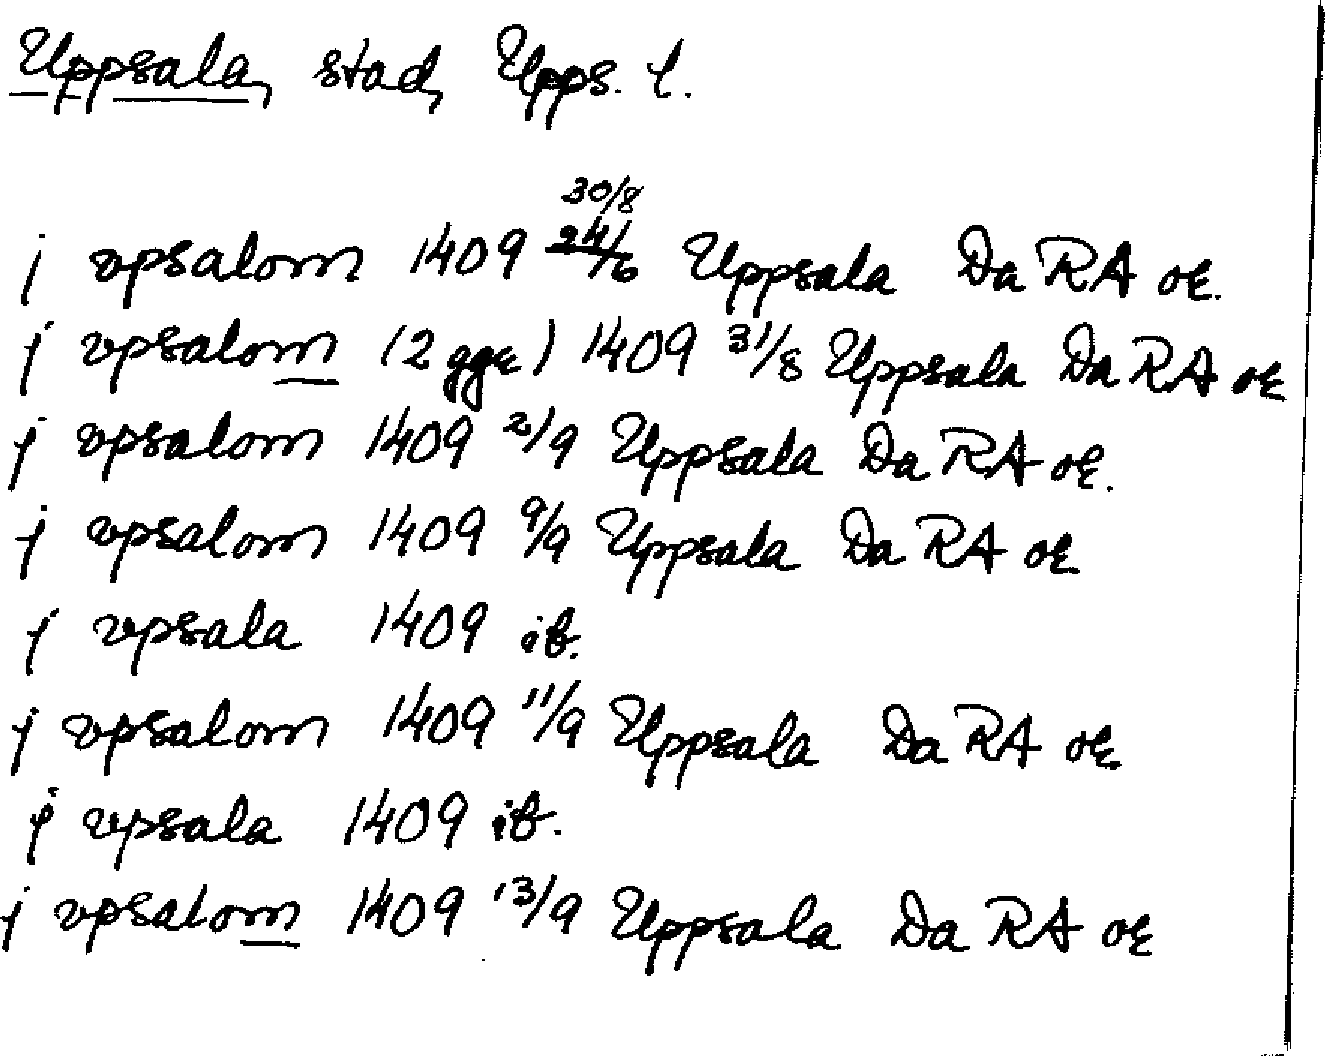 Uppsala, stad, Upps. l.
30/8
j vpsalom 1409 24/6 Uppsala Da RA or.
j vpsalom (2 ggr) 1409 31/8 Uppsala Da RA or
j vpsalom 1409 2/9 Uppsala Da RA or.
j vpsalom 1409 9/9 Uppsala Da RA or
j vpsala 1409 ib.
j vpsalom 1409 11/9 Uppsala Da RA or
j vpsala 1409 ib.
j vpsalom 1409 13/9 Uppsala Da RA or